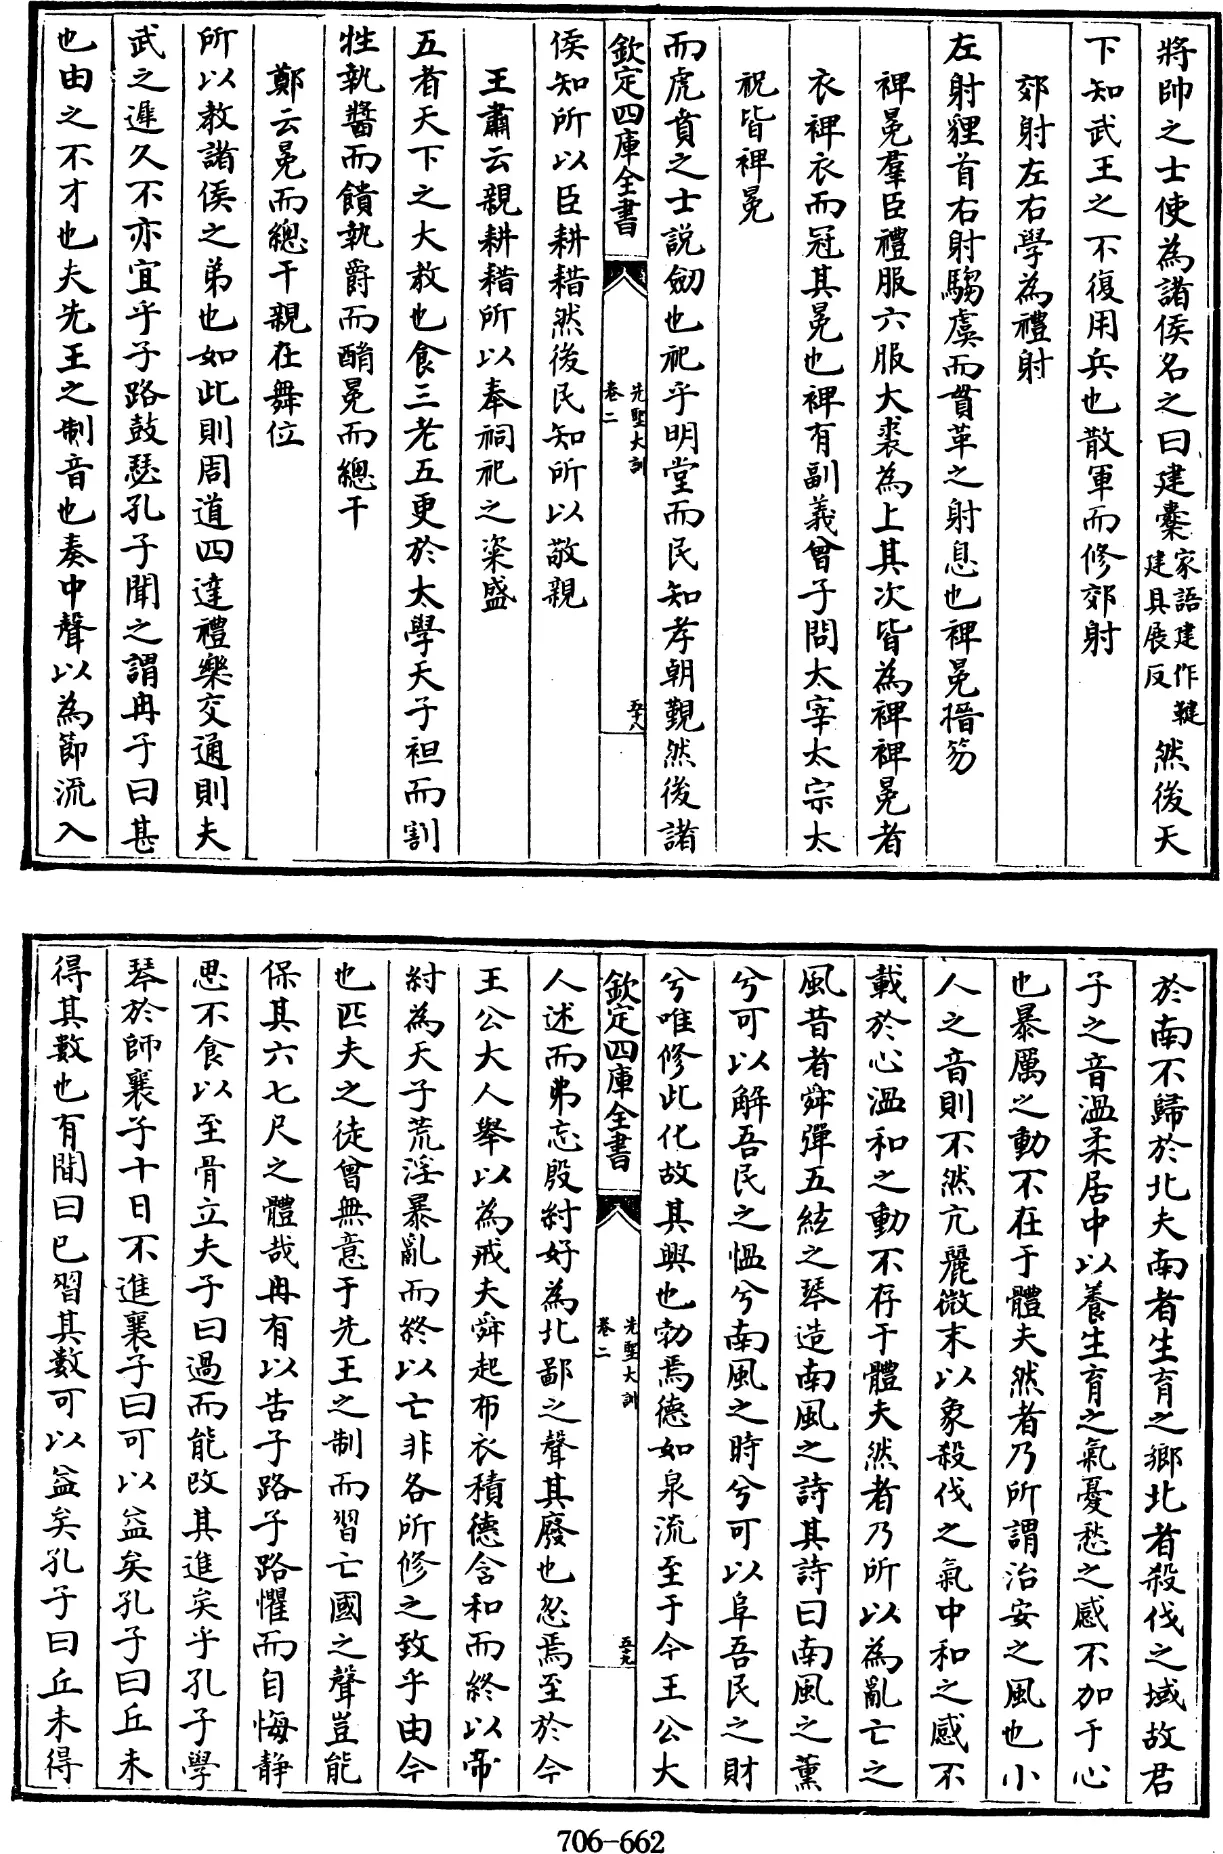 將帥之士使為諸侯名之曰建櫜家語建作鞬建具展反然後天
下知武王之不復用兵也散軍而修郊射
郊射左右學為禮射
左射貍首右射騶虞而貫革之射息也裨冕搢笏
裨冕羣臣禮服六服大裘為上其次皆為裨裨冕者
衣裨衣而冠其冕也裨有副義曾子問太宰太宗太
祝皆裨冕
而虎賁之士説劒也祀乎明堂而民知孝朝覲然後諸
欽定四庫全書 先聖大訓 卷二 五十八
侯知所以臣耕耤然後民知所以敬親
王肅云親耕耤所以奉祠祀之粢盛
五者天下之大教也食三老五更於太學天子袒而割
牲執醬而饋執爵而酳冕而總干
鄭云冕而總干親在舞位
所以教諸侯之弟也如此則周道四達禮樂交通則夫
武之遲久不亦宜乎子路鼓瑟孔子聞之謂冉子曰甚
也由之不才也夫先王之制音也奏中聲以為節流入
於南不歸於北夫南者生育之鄉北者殺伐之域故君
子之音溫柔居中以養生育之氣憂愁之感不加于心
也暴厲之動不在于體夫然者乃所謂治安之風也小
人之音則不然亢麗微末以象殺伐之氣中和之感不
載於心溫和之動不存于體夫然者乃所以為亂亡之
風昔者舜彈五絃之琴造南風之詩其詩曰南風之薰
兮可以解吾民之慍兮南風之時兮可以阜吾民之財
兮唯修此化故其興也勃焉德如泉流至于今王公大
欽定四庫全書 先聖大訓 卷二 五十九
人述而弗忘殷紂好為北鄙之聲其廢也忽焉至於今
王公大人舉以為戒夫舜起布衣積德含和而終以帝
紂為天子荒淫暴亂而終以亡非各所修之致乎由今
也匹夫之徒曾無意于先王之制而習亡國之聲豈能
保其六七尺之體哉冉有以告子路子路懼而自悔静
思不食以至骨立夫子曰過而能改其進矣乎孔子學
琴於師襄子十日不進襄子曰可以益矣孔子曰丘未
得其數也有間曰已習其數可以益矣孔子曰丘未得
706-662